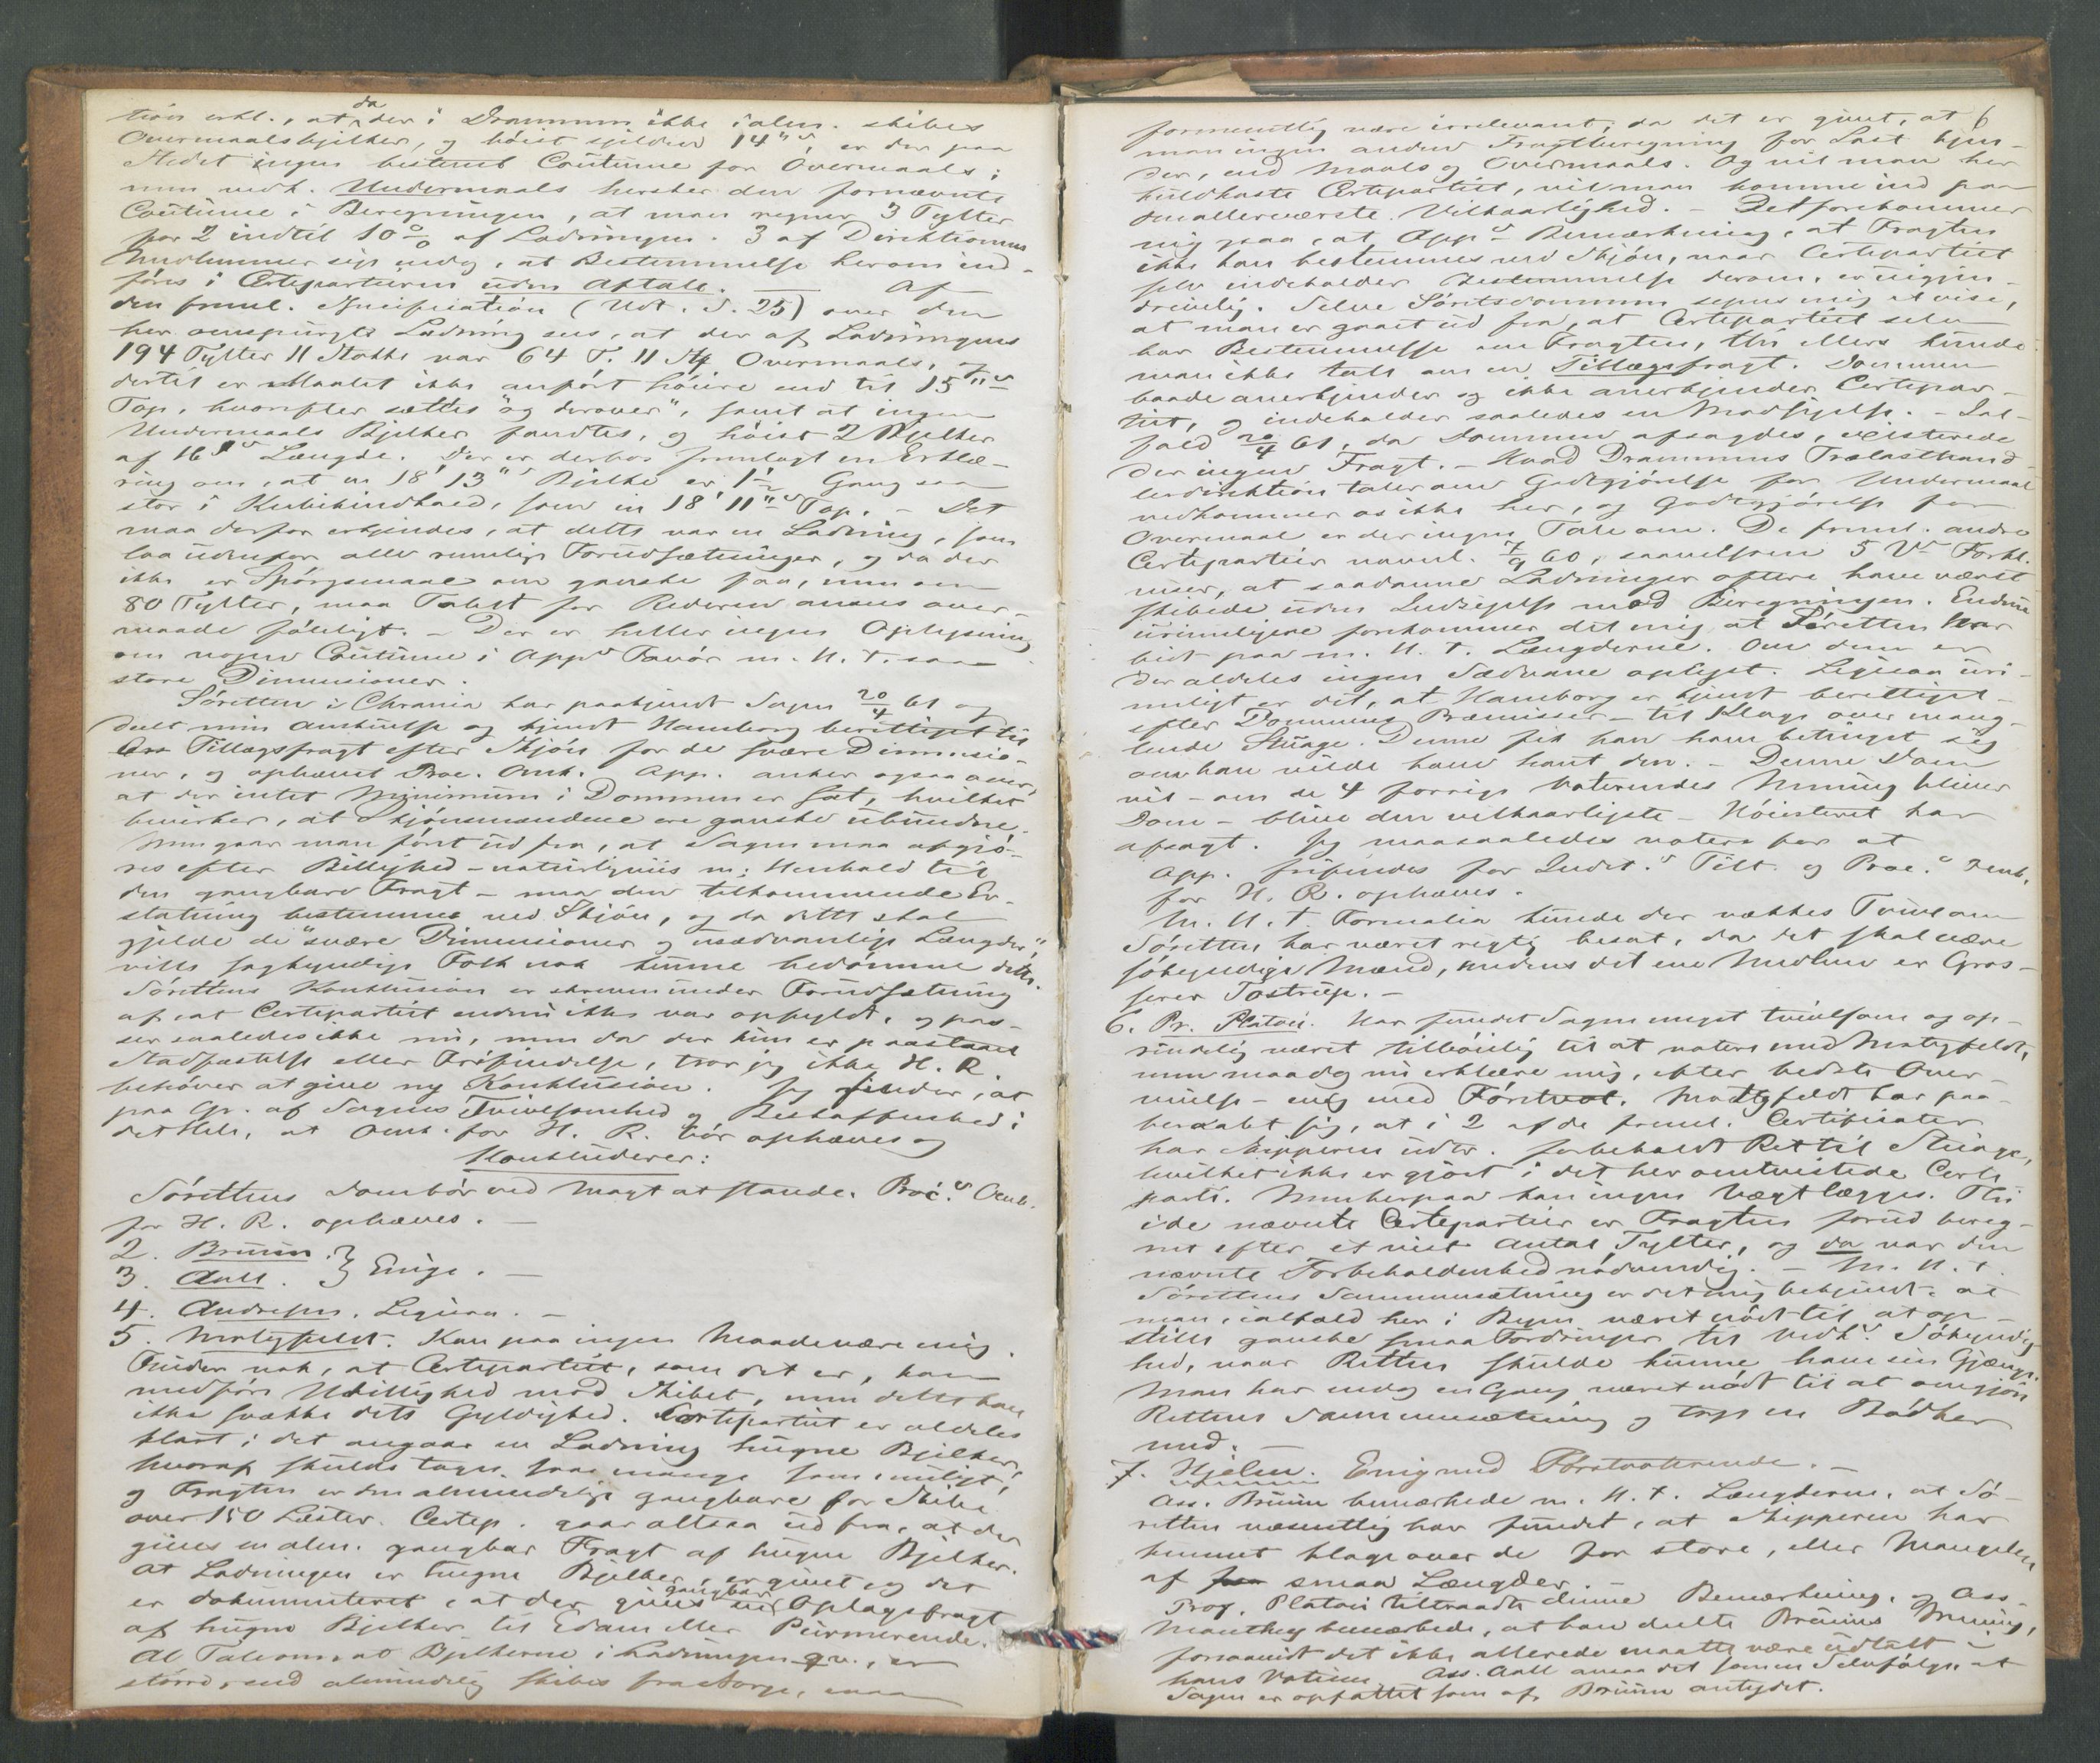 da
tion erkl., at der i Drammen ikke i alm. skibes
Overmaalsbjelker, og høist sjelden 14"s, er der paa
Stedet ingen bestemt Coutume for Overmaals;
men vedk. Undermaals hersker den fornævnte
Coutume i Beregningen, at man regner 3 Tylter
for 2 indtil 10% af Ladningen. 3 af Direktionens
Medlemmer sige endog, at Bestemmelse herom ind-
føres i Certepartierne uden Aftale. — Af
den freml. Specification (Udt. S. 25) over den
her omspurgte Ladning sees, at der af Ladningens
194 Tylter 11 Stokke var 64 T. 11 St. Overmaals, og
dertil er Maalet ikke anført høiere end til 15"s
Top, hvorefter sættes "og derover", samt at ingen
Undermaals Bjelker fandtes, og høist 2 Bjelker
af 16's Længde. Der er derhos fremlagt en Erklæ-
ring om, at en 18' 13"s Bjelke er 1½ Gang saa
stor i Kubikindhold, som en 18' 11"s Top. – Det
maa derfor erkjendes, at dette var en Ladning, som
laa udenfor alle rimelige Forudsætninger, og da der
ikke er Spørgsmaal om ganske faa, men om
80 Tylter, maa Tabet for Rederen ansees over-
maade føleligt. – Der er heller ingen Oplysning
om nogen Coutume i App.s Favør m. H. t. saa
store Dimensioner.
Søretten i Chrania har paakjendt Sagen 20/4 61 og
deelt min Anskuelse og kjendt Hamborg berettiget til
Tillægsfragt efter Skjøn for de svære Dimensio-
ner, og ophævet Proc. Omk. App. anker ogsaa over,
at der intet Minimum i Dommen er sat, hvilket
bevirker, at Skjønsmændene ere ganske ubundne.
Men gaar man først ud fra, at Sagen maa afgjø-
res efter Billighed – naturligviis m. Henhold til
den gangbare Fragt – maa den tilkommende Er-
statning bestemmes ved Skjøn, og da dette skal
gjelde de "svære Dimensioner og usædvanlige Længder",
ville sagkyndige Folk nok kunne bedømme dette.
Sørettens Konklusion er skreven under Forudsætning
af, at Certepartiet endnu ikke var opfyldt, og pas-
ser saaledes ikke nu, men da der kun er paastaaet
Stadfæstelse eller Frifindelse, tror jeg ikke H. R.
behøver at give ny Konklusion. Jeg finder, at
paa Gr. af Sagens Tvivlsomhed og Beskaffenhed i
det Hele, at Omk. for H. R. bør ophæves og
Konkluderer:
Sørettens Dom bør ved Magt at stande. Proc.s Omk.
for H. R. ophæves. –
2. Bruun. } Enige. –
3. Aall.
4. Andresen. Ligesaa. –
5. Motzfeldt. Kan paa ingen Maade være enig.
Finder nok, at Certepartiet, som det er, kan
medføre Ubillighed mod Skibet, men dette kan
ikke svække dets Gyldighed. Certepartiet er aldeles
klart; det angaar en Ladning hugne Bjelker,
hvoraf skulde tages saa mange som muligt,
og Fragten er den almindelige gangbare for Skibe
over 150 Læster. Certep. gaar altsaa ud fra, at der
gives en alm. gangbar Fragt af hugne Bjelker.
At Ladningen er hugne Bjelker, er givet og det
er dokumenteret, at der gives en gangbar Oplagsfragt
af hugne Bjelker til Edam eller Purmerende.
Al Tale om, at Bjelkerne i Ladningen qv., er
større, end almindelig skibes fra Norge, maa
6
formentlig være irrelevant, da det er givet, at
man ingen anden Fragtberegning for Last kjen-
der, end Maals og Overmaals. Og vil man her
kuldkaste Certepartiet, vil man komme ind paa
den allerværste Vilkaarlighed. – Det forekommer
mig ogsaa, at App.s Bemærkning, at Fragten
ikke kan bestemmes ved Skjøn, naar Certepartiet
selv indeholder Bestemmelse derom, er uigjen-
drivelig. Selve Søretsdommen synes mig at vise,
at man er gaaet ud fra, at Certepartiet selv
har Bestemmelse om Fragten, thi ellers kunde
man ikke tale om en Tillægsfragt. Dommen
baade anerkjender og ikke anerkjender Certepar-
tiet, og indeholder saaledes en Modsigelse. – Ial-
fald 20/4 61, da Dommen afsagdes, existerede
der ingen Fragt. – Hvad Drammens Trælasthand-
lerdirektion taler om Godtgjørelse for Undermaal
vedkommer os ikke her, og Godtgjørelse for
Overmaal er der ingen Tale om. De freml. andre
Certepartier navnl. 7/9 60, saavelsom 5 V.s Forkl.
viser, at saadanne Ladninger oftere have været
skibede uden Indsigelse mod Beregningen. Endnu
urimeligere forekommer det mig at Søretten har
budt paa m. H. t. Længderne. Om dem er
der aldeles ingen Sædvane oplyst. Ligesaa uri-
meligt er det, at Hamborg er kjendt berettiget –
efter Dommens Præmisser – til Klage over mang-
lende Stuage. Denne fik han have betinget sig
om han vilde have havt den. – Denne Dom
vil – om de 4 forrige Voterendes Mening bliver
Dom – blive den vilkaarligste Høiesteret har
afsagt. Jeg maa saaledes votere for at
App. frifindes for Indst.s Tilt. og Proc.s Omk.
for H. R. ophæves.
M. H. t. Formalia kunde der vækkes Tvivl om
Søretten har været rigtig besat, da det skal være
søkyndige Mænd, medens det ene Medlem er Gros-
serer Tostrup. –
6. Pr. Platou. Har fundet Sagen meget tvivlsom og op-
rindelig været tilbøielig til at votere med Motzfeldt,
men maa dog nu erklære mig, efter bedste Over-
veielse – enig med Førstvot. Motzfeldt har paa-
beraabt sig, at i 2 af de freml. Certificater
har Skipperen udtr. forbeholdt Ret til Stuage,
hvilket ikke er gjort i det her omtvistede Certe-
parti. Men herpaa kan ingen Vægt lægges. Thi
i de nævnte Certepartier er Fragten forud bereg-
net efter et vist Antal Tylter, og da var den
nævnte Forbeholdenhed nødvendig. – M. H. t.
Sørettens Sammensætning er det mig bekjendt, at
man, ialfald her i Byen, været nødt til at op-
stille ganske smaa Fordringer til Vedk.s Søkyndig-
hed, naar Retten skulde kunne have sin Gjænge.
Man har endog en Gang været nødt til at omgjøre
Rettens Sammensætning og tage en Bødker
med. –
7. Hjelm. Enig med Førstvoterende. –
Ass. Bruun bemærkede m. H. t. Længderne, at Sø-
retten væsentlig har fundet, at Skipperen har
kunnet klage over de for store, eller Mangelen
af smaa Længder.
Prof. Platou tiltraadte denne Bemærkning, og Ass.
Manthey bemærkede, at han deelte Bruuns Mening,
forsaavidt det ikke allerede maatte være udtalt i
hans Votum. Ass. Aall ansaa det som en Selvfølge, at
Sagen er opfattet som af Bruun antydet.